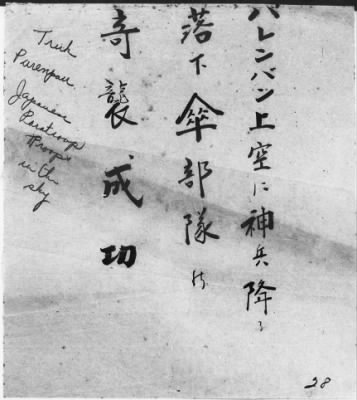 パレンバン上空に神兵降る
落下傘部隊の
奇襲成功
Truk
Japanese
Paratroop
Troops
in the
sky
28